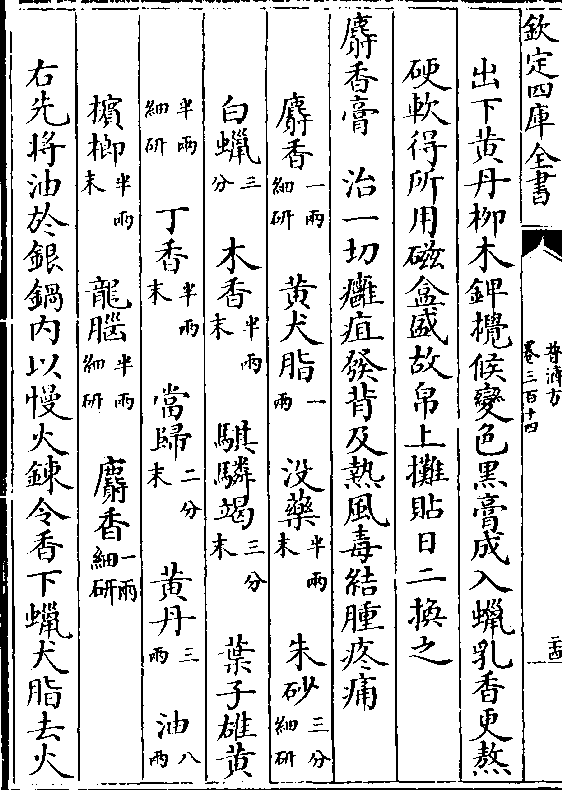 欽定四庫全書
普濟方
卷三百十四
二十四
出下黄丹柳木鎞攪候變色黑膏成入蠟乳香更熬
硬軟得所用磁盒盛故帛上攤貼日二換之
麝香膏　治一切癰疽發背及熱風毒結腫疼痛
麝香一兩細研　黄犬脂一兩　没藥半兩末　朱砂三分細研
白蠟三分　木香半兩末　騏驎竭三分末　葉子雄黄
半兩細研　丁香半兩末　當歸二分末　黄丹三兩　油八兩
檳榔半兩末　龍腦半兩細研　麝香一兩細研
右先將油於銀鍋内以慢火錬令香下蠟犬脂去火